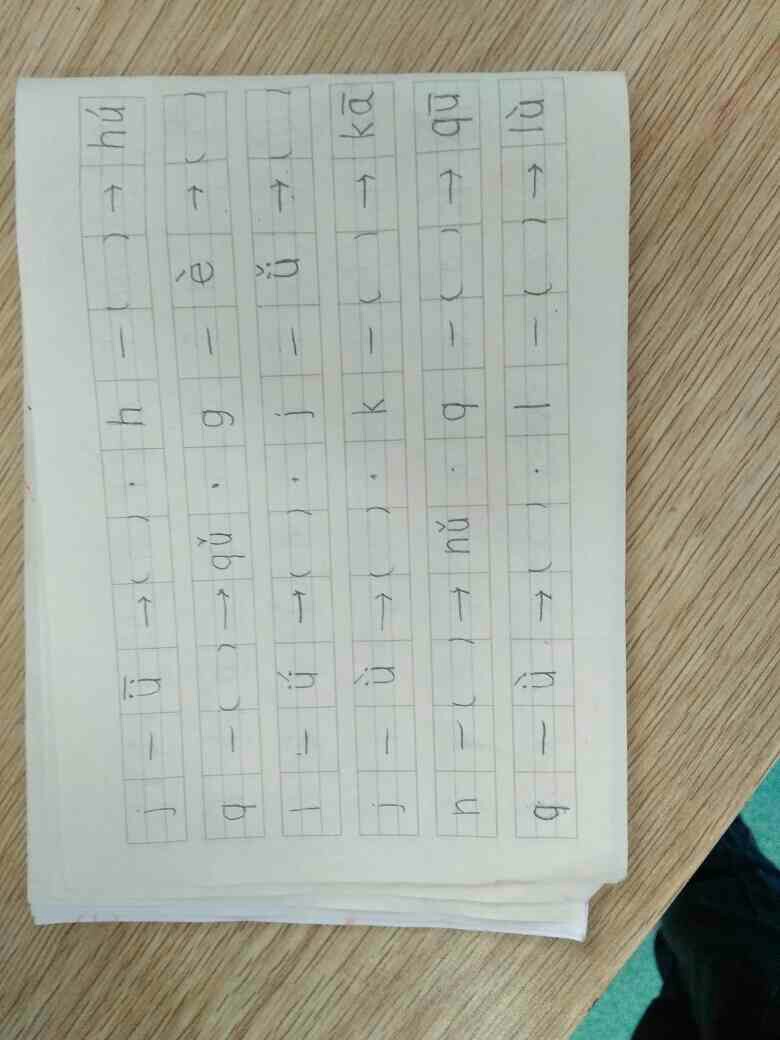 j — ǖ → ( ) · h — ( ) → hú
q — ( ) → qǔ · g — è → ( )
l — ǘ → ( ) · j — ǚ → ( )
j — ǜ → ( ) · k — ( ) → kā
n — ( ) → nǔ · q — ( ) → qū
q — ǜ → ( ) · l — ( ) → lù